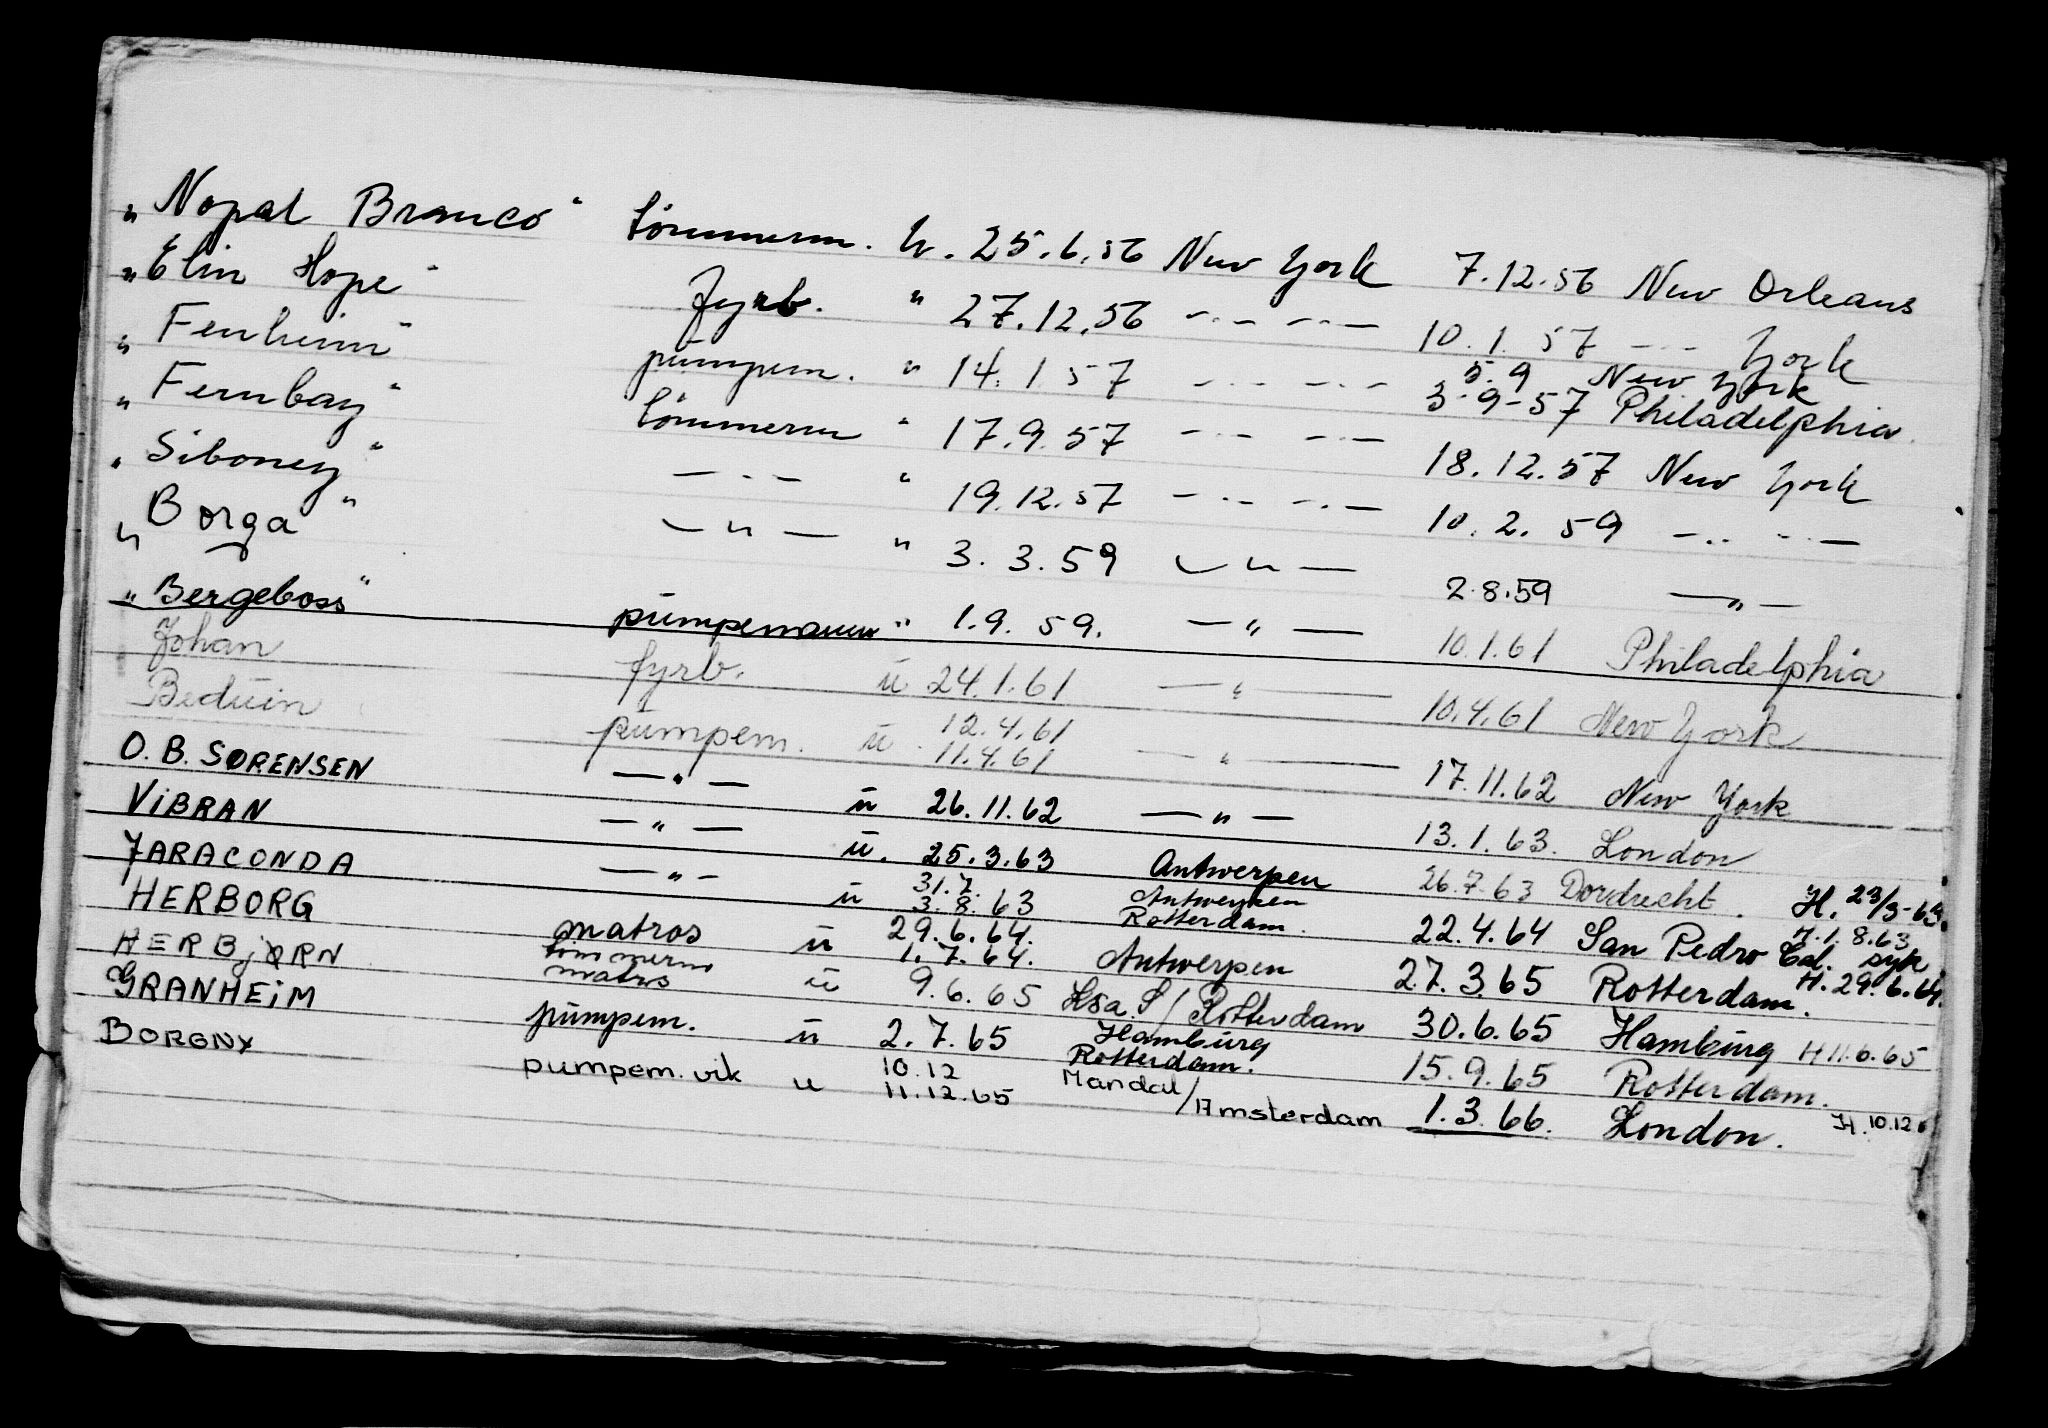 „ Nopal Branco " tömmerm. u. 25.6.56 New York 7.12.56 New Orleans
„ Elin Hope " fyrb. " 27.12.56 —〃— —〃— 10.1.57 —〃— York
5.9 New York
„ Fernheim " pumpem. " 14.1.57 —〃— —〃— 3-9-57 Philadelphia
„ Fernbay " tömmerm " 17.9.57 —〃— —〃— 18.12.57 New York
„ Siboney " —〃— " 19.12.57 —〃— —〃— 10.2.59 —〃— —〃—
„ Borga " —〃— " 3.3.59 —〃— 2.8.59 —〃—
„ Bergeboss " pumpemann " 1.9.59. —〃— 10.1.61 Philadelphia
Johan fyrb. u 24.1.61 —〃— 10.4.61 New York
12.4.61
Beduin pumpem. u 11.4.61 —〃— 17.11.62 New York
O.B. SØRENSEN —〃— u 26.11.62 —〃— 13.1.63. London
VIBRAN —〃— u. 25.3.63 Antwerpen 26.7.63 Dordrecht. H. 23/3-63.
31.7. Antwerpen H. 1.8.63
JARACONDA —〃— u 3.8.63 Rotterdam. 22.4.64 San Pedro Cal. syk
29.6.64.
HERBORG matros u 1.7.64. Antwerpen 27.3.65 Rotterdam. H. 29.6.64.
tömmerm
HERBJØRN matros u 9.6.65 / Rotterdam 30.6.65 Hamburg H 11.6.65
Hamburg
GRANHEIM pumpem. u 2.7.65 Rotterdam. 15.9.65 Rotterdam.
10.12 Mandal/
BORGNY pumpem. vik u 11.12.65 Amsterdam 1.3.66. London. H. 10.12